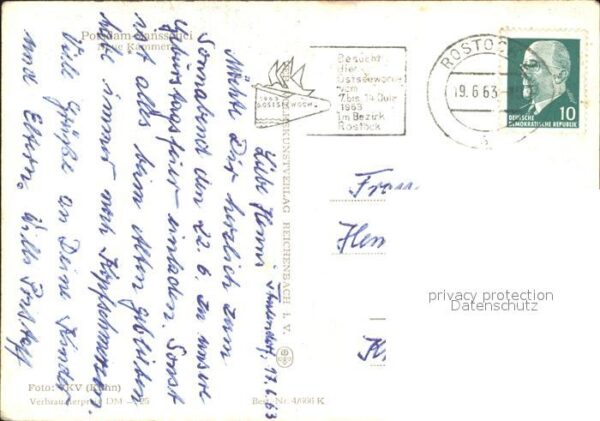 Potsdam-Sanssouci
Neue Kammern
Liebe Henni
17.6.63
Möchte Dich herzlich zum
Sonnabend den 22.6. zu unserer
Geburtstagsfeier einladen. Sonst
ist alles beim alten geblieben
habe immer noch Kopfschmerzen.
Viele Grüße an Deine Kinder
und Eltern.
Foto: VKV (Kühn)
Verbraucherpreis DM -,25
Best.-Nr. 4/666 K
REICHENBACH I. V.
1963
OSTSEEWOCHE
Besucht
die
Ostseewoche
vom
7. bis 14. Juli
1963
im Bezirk
Rostock
ROSTOCK
19.6.63
DEUTSCHE
DEMOKRATISCHE REPUBLIK
10
Frau
Hen
K
privacy protection
Datenschutz